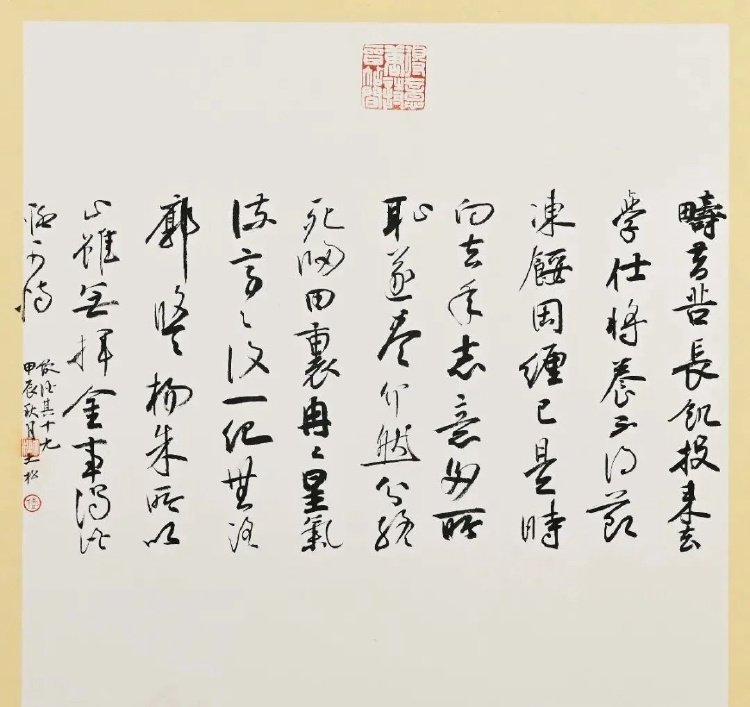 疇昔苦長飢投耒去
學仕將養不得節
凍餒固纏己是時
向立年志意多所
恥遂盡介然分終
死歸田裏冉〻星氣
流亭〻復一紀世路
廓悠〻楊朱所以
止雖無揮金事濁酒
聊可恃
飲酒其十九
甲辰秋月